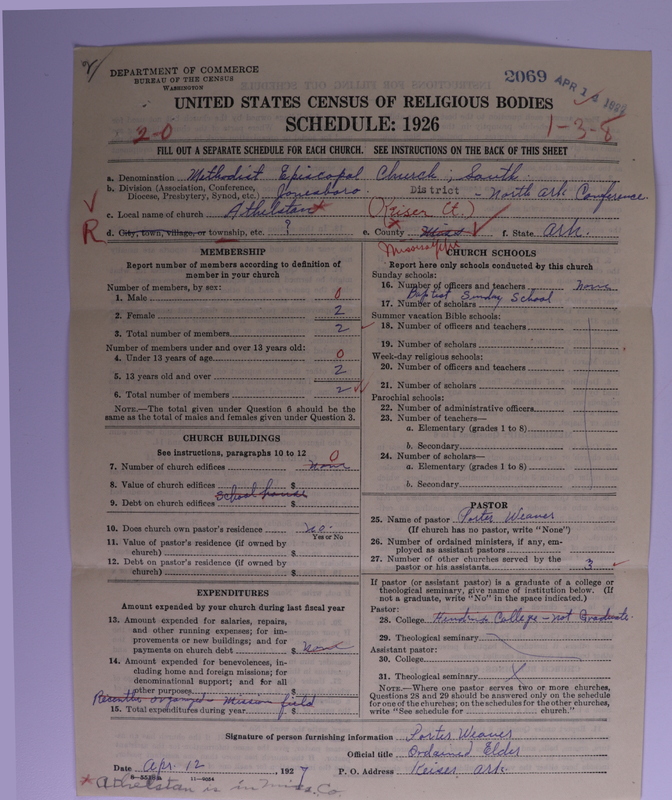 DEPARTMENT OF COMMERCE
BUREAU OF THE CENSUS
WASHINGTON
2069 APR 14
UNITED STATES CENSUS OF RELIGIOUS BODIES
2-0 SCHEDULE: 1926 1-3-8
FILL OUT A SEPARATE SCHEDULE FOR EACH CHURCH. SEE INSTRUCTIONS ON THE BACK OF THIS SHEET
a. Denomination Methodist Episcopal Church, South.
b. Division (Association, Conference, Diocese, Presbytery, Synod, etc.) Jonesboro. District - North Ark Conference.
c. Local name of church Athelstan* (Keiser Ct.)
R d. City, town, village, or township, etc. ? e. County Miss f. State Ark.
Mississippi
MEMBERSHIP
Report number of members according to definition of
member in your church
Number of members, by sex:
1. Male 0
2. Female 2
3. Total number of members 2
Number of members under and over 13 years old:
4. Under 13 years of age 0
5. 13 years old and over 2
6. Total number of members 2
NOTE.—The total given under Question 6 should be the
same as the total of males and females given under Question 3.
CHURCH BUILDINGS
See instructions, paragraphs 10 to 12
7. Number of church edifices none 0
8. Value of church edifices $
School house
9. Debt on church edifices $
10. Does church own pastor's residence no.
Yes or No
11. Value of pastor's residence (if owned by
church) $
12. Debt on pastor's residence (if owned by
church) $
EXPENDITURES
Amount expended by your church during last fiscal year
13. Amount expended for salaries, repairs,
and other running expenses; for im-
provements or new buildings; and for
payments on church debt $ None
14. Amount expended for benevolences, in-
cluding home and foreign missions; for
denominational support; and for all
other purposes $
Recently organized mission field
15. Total expenditures during year $
CHURCH SCHOOLS
Report here only schools conducted by this church
Sunday schools:
16. Number of officers and teachers none
Baptist Sunday School
17. Number of scholars
Summer vacation Bible schools:
18. Number of officers and teachers
19. Number of scholars
Week-day religious schools:
20. Number of officers and teachers
21. Number of scholars
Parochial schools:
22. Number of administrative officers
23. Number of teachers—
a. Elementary (grades 1 to 8)
b. Secondary
24. Number of scholars—
a. Elementary (grades 1 to 8)
b. Secondary
PASTOR
25. Name of pastor Porter Weaver
(If church has no pastor, write "None")
26. Number of ordained ministers, if any, em-
ployed as assistant pastors
27. Number of other churches served by the
pastor or his assistants 3
If pastor (or assistant pastor) is a graduate of a college or
theological seminary, give name of institution below. (If
not a graduate, write "No" in the space indicated.)
Pastor:
28. College Hendrix College - not Graduate.
29. Theological seminary
Assistant pastor:
30. College
31. Theological seminary
NOTE.—Where one pastor serves two or more churches,
Questions 28 and 29 should be answered only on the schedule
for one of the churches; on the schedules for the other churches,
write "See schedule for church."
Signature of person furnishing information Porter Weaver
Official title Ordained Elder
Date Apr. 12, 1927 P. O. Address Keiser, Ark.
11-9024
* Athelstan is in Miss. Co.